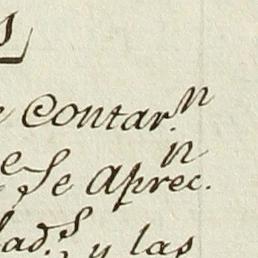 e Contar.ⁿ
e Se aprec.ⁿ
ad.ˢ y las